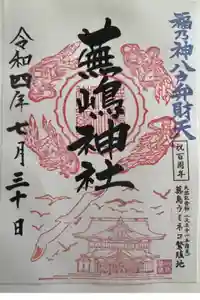 福乃神八戸弁財天
祝百周年
天然記念物
蕪島ウミネコ繁殖地
蕪嶋神社
令和四年七月三十日